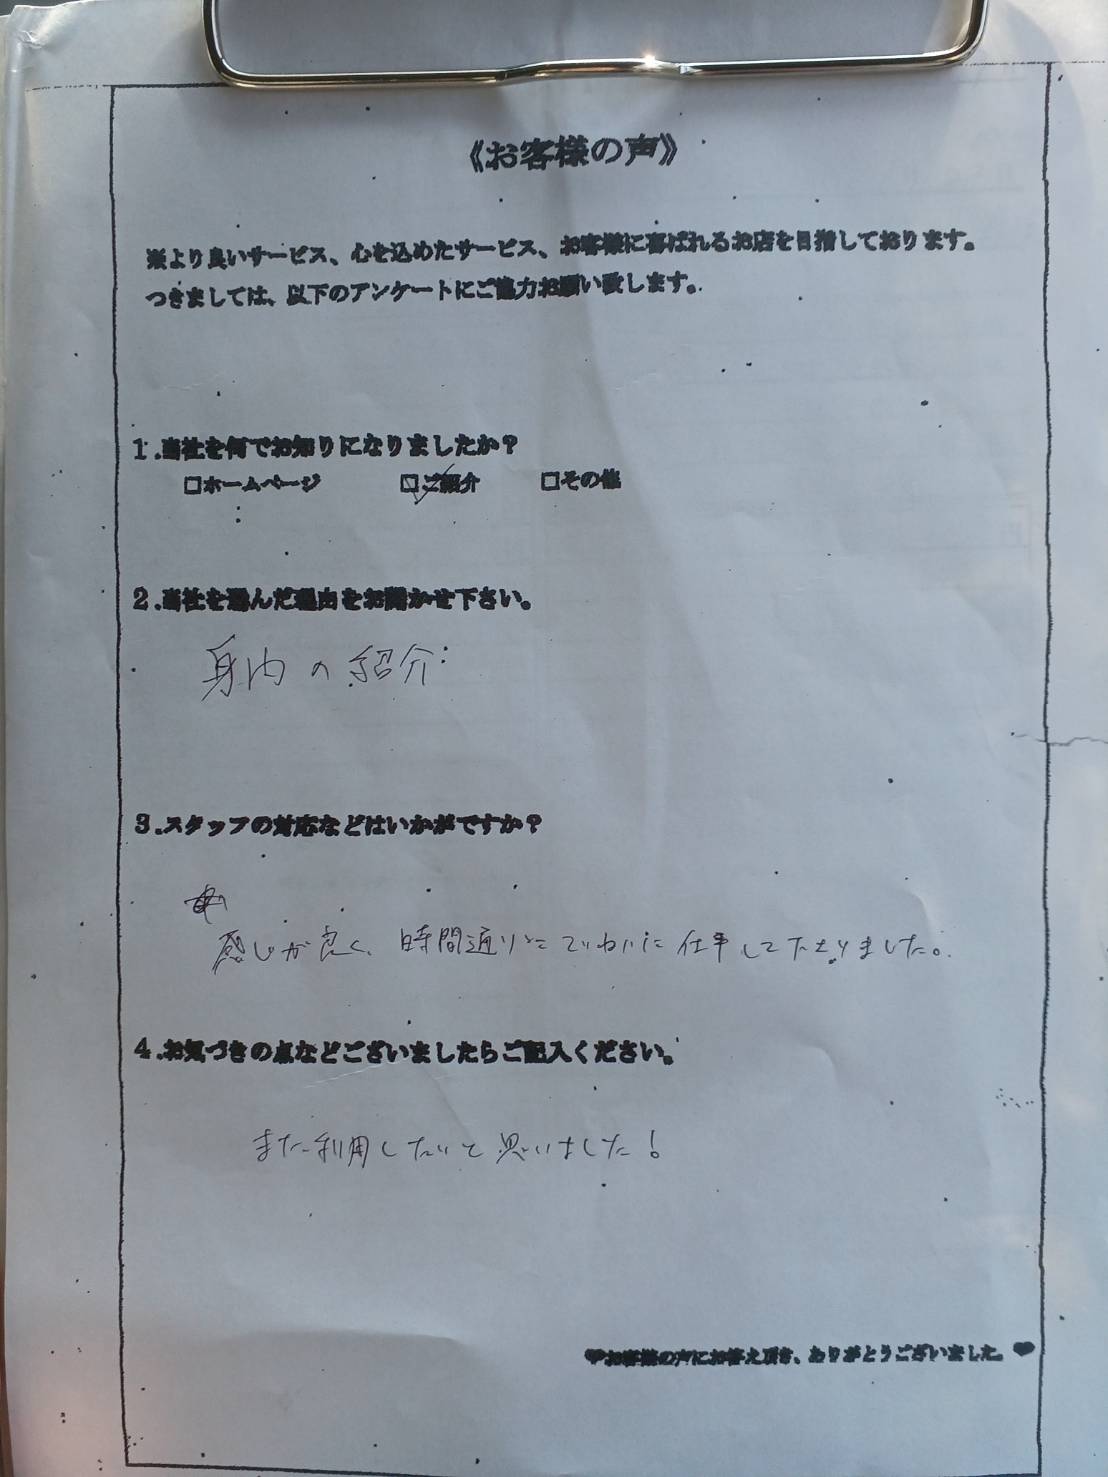 《お客様の声》
※より良いサービス、心を込めたサービス、お客様に喜ばれるお店を目指しております。
つきましては、以下のアンケートにご協力お願い致します。
1.当社を何でお知りになりましたか?
□ホームページ ☑ご紹介 □その他
2.当社を選んだ理由をお聞かせ下さい。
身内の紹介
3.スタッフの対応などはいかがですか?
感じが良く、時間通りにていねいに仕事して下さりました。
4.お気づきの点などございましたらご記入ください。
また利用したいと思いました!
♥お客様の声にお答え頂き、ありがとうございました。♥